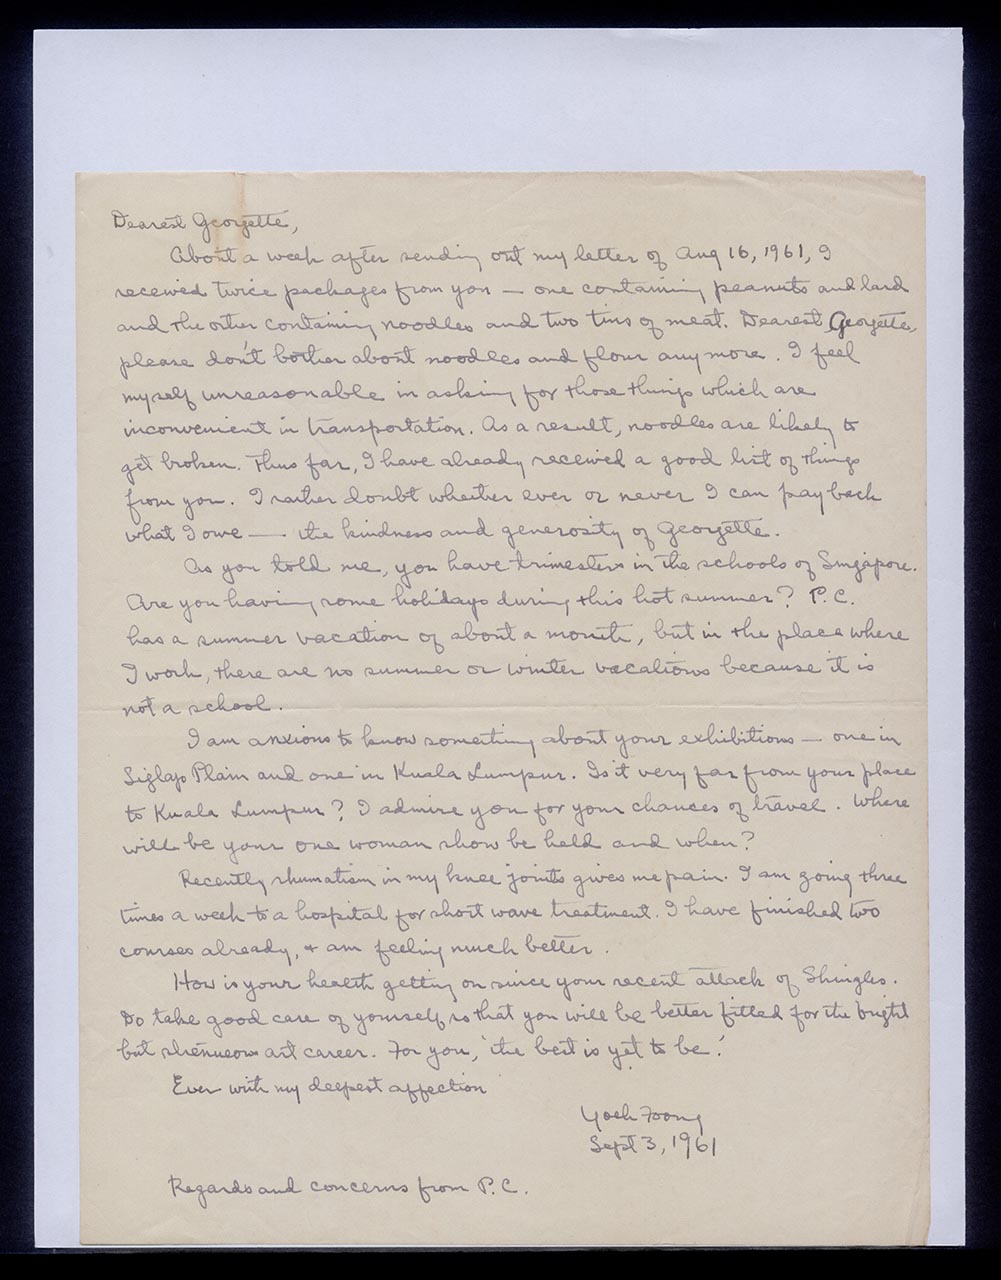 Dearest Georgette,
About a week after sending out my letter of Aug 16, 1961, I
received twice packages from you — one containing peanuts and lard
and the other containing noodles and two tins of meat. Dearest Georgette,
please don't bother about noodles and flour any more. I feel
myself unreasonable in asking for those things which are
inconvenient in transportation. As a result, noodles are likely to
get broken. Thus far, I have already received a good list of things
from you. I rather doubt whether ever or never I can pay back
what I owe — the kindness and generosity of Georgette.
As you told me, you have trimesters in the schools of Singapore.
Are you having some holidays during this hot summer? P.C.
has a summer vacation of about a month, but in the place where
I work, there are no summer or winter vacations because it is
not a school.
I am anxious to know something about your exhibitions — one in
Siglap Plain and one in Kuala Lumpur. Is it very far from your place
to Kuala Lumpur? I admire you for your chances of travel. Where
will be your one woman show be held and when?
Recently rhumatism in my knee joints gives me pain. I am going three
times a week to a hospital for short wave treatment. I have finished two
courses already, & am feeling much better.
How is your health getting on since your recent attack of Shingles.
Do take good care of yourself so that you will be better fitted for the bright
but strenuous art career. For you, 'the best is yet to be.'
Ever with my deepest affection
Yoeh Foong
Sept 3, 1961
Regards and concerns from P.C.